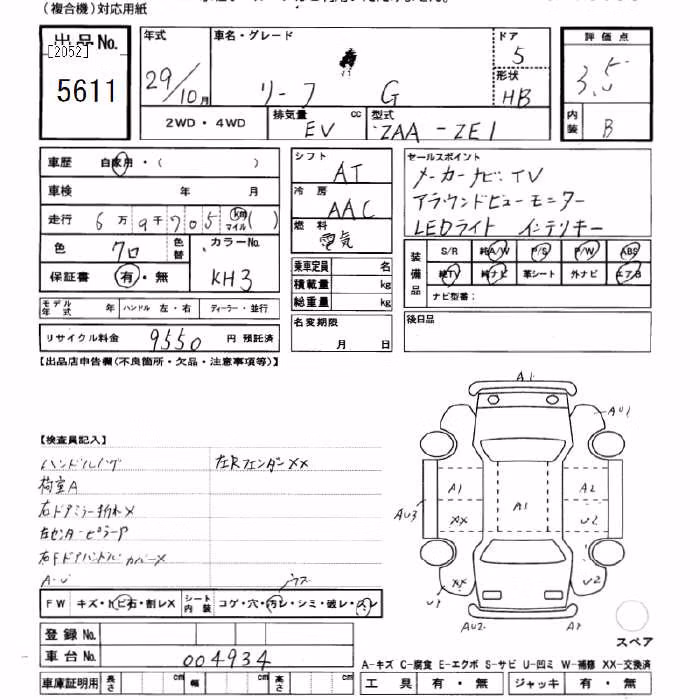 (複合機)対応用紙
出品No.
[2052]
5611
年式
29/10月
車名・グレード
リーフ G
ドア
5
形状
HB
評価点
3.5
内装
B
2WD・4WD
排気量 cc
EV
型式
ZAA-ZE1
車歴 自家用・( )
車検 年 月
走行 6万9千705 km マイル ( )
色 クロ 色替
カラーNo.
KH3
保証書 有・無
モデル年式 年 ハンドル 左・右 ディーラー・並行
リサイクル料金 9550 円 預託済
シフト
AT
冷房
AAC
燃料
電気
乗車定員 名
積載量 kg
総重量 kg
名変期限
月 日
セールスポイント
メーカーナビ:TV
アラウンドビューモニター
LEDライト インテリキー
装備品
S/R 純A/W P/S P/W ABS
純TV 純ナビ 革シート 外ナビ エアB
ナビ型番:
後日品
【出品店申告欄(不良箇所・欠品・注意事項等)】
【検査員記入】
ハンドルハゲ 左Rフェンダー××
荷室A
右ドアミラー折れ×
左センターピラーア
右Fドアハンドルカバー×
A・U
FW キズ・トビ石・割レX シート内装 コゲ・穴・汚レ・シミ・破レ・スレ
登録No.
車台No. 004934
車庫証明用 長さ cm 幅 cm 高さ cm
A1
AU1
A1
A2
A1
AU3
XX
U2
XX
U2
U1
AU2
A2
スペア
A-キズ C-腐食 E-エクボ S-サビ U-凹ミ W-補修 XX-交換済
工具 有・無 ジャッキ 有・無